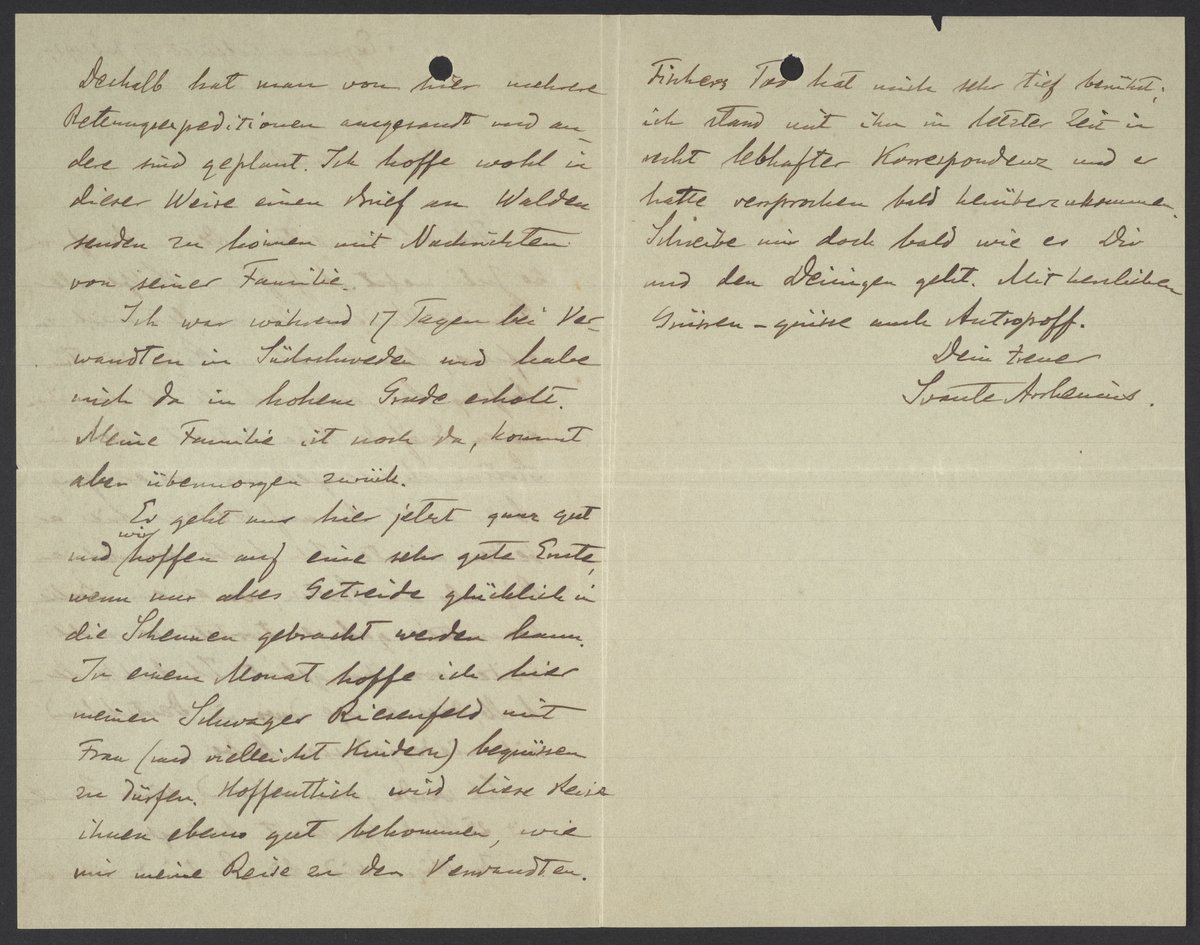 Deshalb hat man von hier mehrere
Rettungsexpeditionen ausgesandt und an-
dere sind geplant. Ich hoffe wohl in
dieser Weise einen Brief an Walden
senden zu können mit Nachrichten
von seiner Familie.
Ich war während 17 Tagen bei Ver-
wandten in Südschweden und habe
mich da in hohem Grade erholt.
Meine Familie ist noch da, kommt
aber übermorgen zurück.
Es geht uns hier jetzt ganz gut
und wir hoffen auf eine sehr gute Ernte,
wenn nur alles Getreide glücklich in
die Scheunen gebracht werden kann.
In einem Monat hoffe ich hier
meinen Schwager Riesenfeld mit
Frau (und vielleicht Kindern) begrüssen
zu dürfen. Hoffentlich wird diese Reise
ihnen ebenso gut bekommen, wie
mir meine Reise zu den Verwandten.
Fischers Tod hat mich sehr tief berührt;
ich stand mit ihm in letzter Zeit in
recht lebhafter Korrespondenz und er
hatte versprochen bald herüberzukommen.
Schreibe mir doch bald wie es Dir
und den Deinigen geht. Mit herzlichen
Grüssen – grüsse auch Antropoff.
Dein treuer
Svante Arrhenius.